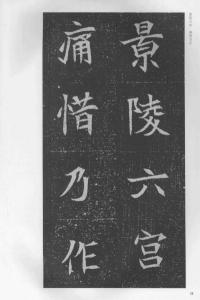 景陵六宫
痛惜乃作